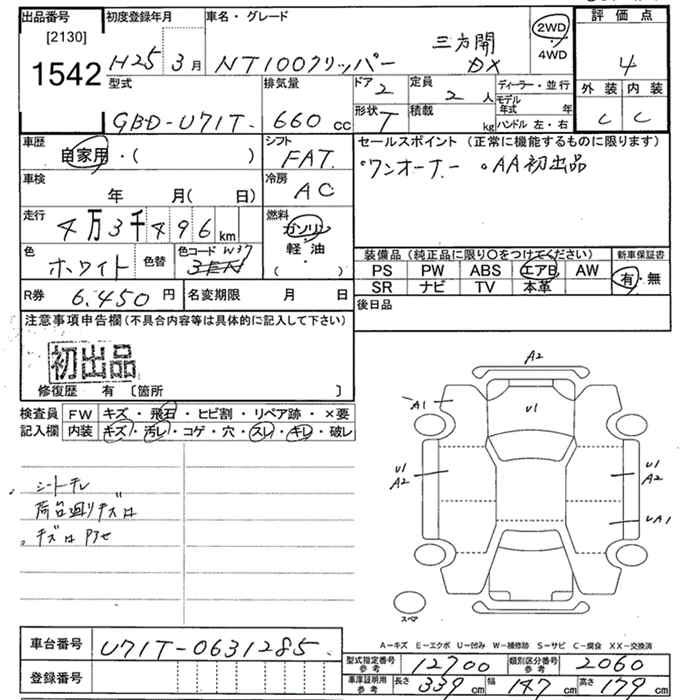 出品番号
[2130]
1542
初度登録年月
H25 3月
車名・グレード
NT100クリッパー 三方開 DX
2WD
・
4WD
評価点
4
外装 内装
C C
型式
GBD-U71T
排気量
660 cc
ドア 2
定員 2 人
ディーラー・並行
モデル年式 年
形状 T
積載 kg
ハンドル 左・右
車歴
自家用・( )
シフト
FAT
セールスポイント (正常に機能するものに限ります)
・ワンオーナー ・AA初出品
車検
年 月( 日)
冷房
AC
走行
4万3千496km
燃料
ガソリン
軽油
( ・ )
色
ホワイト
色替
色コード W37
装備品 (純正品に限り○をつけてください)
新車保証書
PS PW ABS エアB AW
有・無
SR ナビ TV 本革
R券 6,450円
名変期限 月 日
後日品
注意事項申告欄(不具合内容等は具体的に記入して下さい)
初出品
修復歴 有 〔箇所 〕
検査員 FW キズ・飛石・ヒビ割・リペア跡・×要
記入欄 内装 キズ・汚レ・コゲ・穴・スレ・キレ・破レ
シートキレ
荷台廻りキズ凹
A2
A1
U1
U1
A2
U1
A2
UA1
スペア
A-キズ E-エクボ U-凹み W-補修跡 S-サビ C-腐食 XX-交換済
車台番号 U71T-0631285
型式指定番号 参考 12700
類別区分番号 参考 2060
登録番号
車庫証明用 参考 長さ 339cm 幅 147cm 高さ 179cm